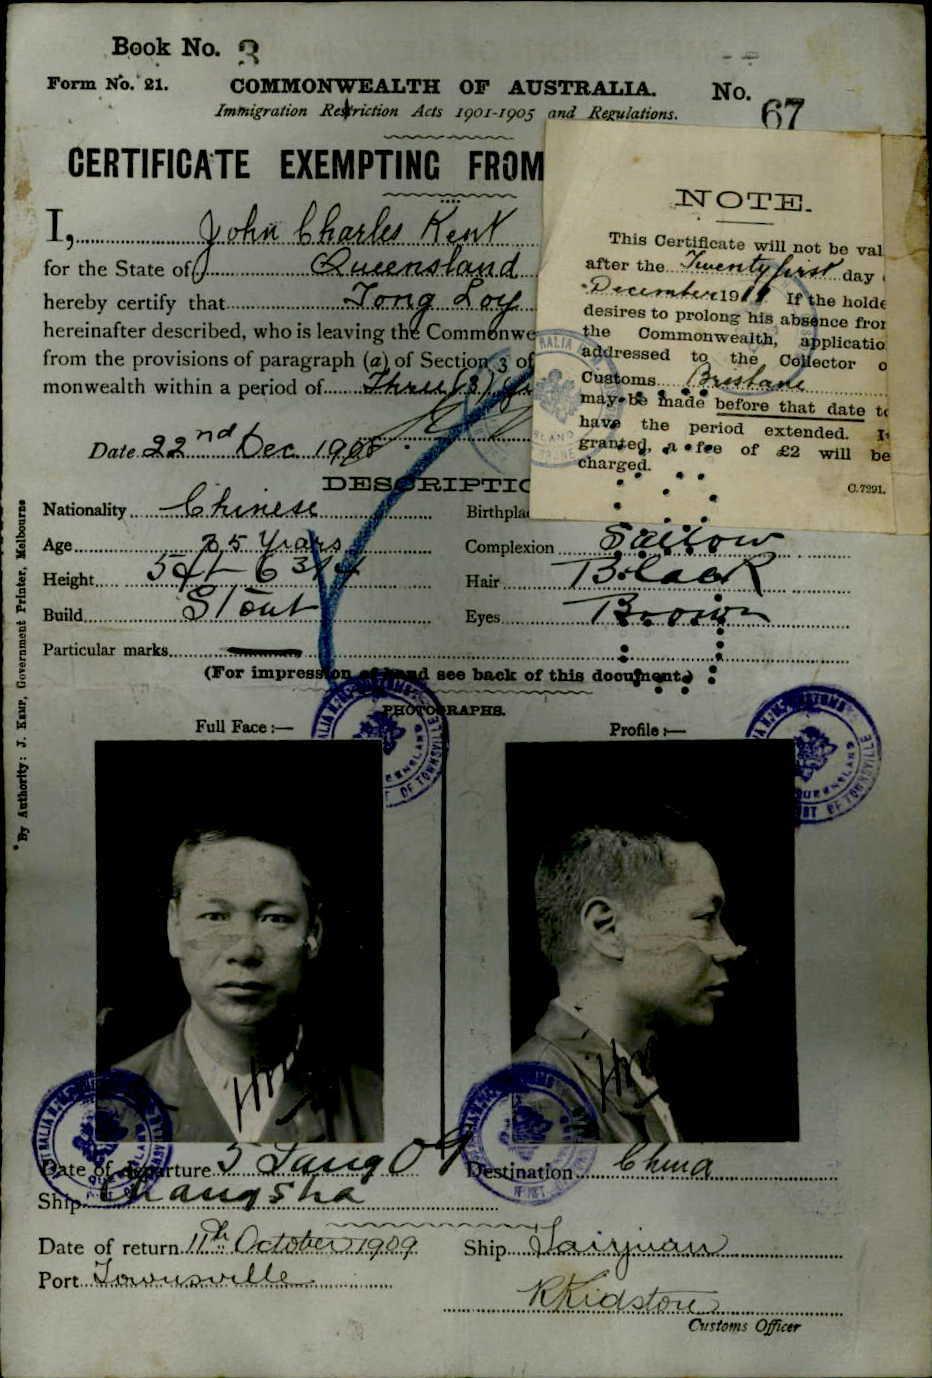 Book No. 3
Form No. 21. COMMONWEALTH OF AUSTRALIA. No. 67
Immigration Restriction Acts 1901-1905 and Regulations.
CERTIFICATE EXEMPTING FROM
I, John Charles Kent
for the State of Queensland
hereby certify that Tong Loy
hereinafter described, who is leaving the Commonwe
from the provisions of paragraph (a) of Section 3 of
monwealth within a period of Three (3) y
Date 22nd Dec 1908
NOTE.
This Certificate will not be val
after the Twenty first day
December 1911 If the holde
desires to prolong his absence from
the Commonwealth, applicatio
addressed to the Collector o
Customs Brisbane
may be made before that date to
have the period extended. I
granted, a fee of £2 will be
charged.
C.7291.
DESCRIPTIO
Nationality Chinese Birthpla
Age 35 Years Complexion Sallow
Height 5ft 6 3/4 Hair Black
Build Stout Eyes Brown
Particular marks
(For impression of hand see back of this document.)
PHOTOGRAPHS.
Full Face :— Profile :—
By Authority: J. Kemp, Government Printer, Melbourne
Date of departure 5 Jany 09 Destination China
Ship Changsha
Date of return 11th October 1909 Ship Taiyuan
Port Townsville
R Kidston
Customs Officer